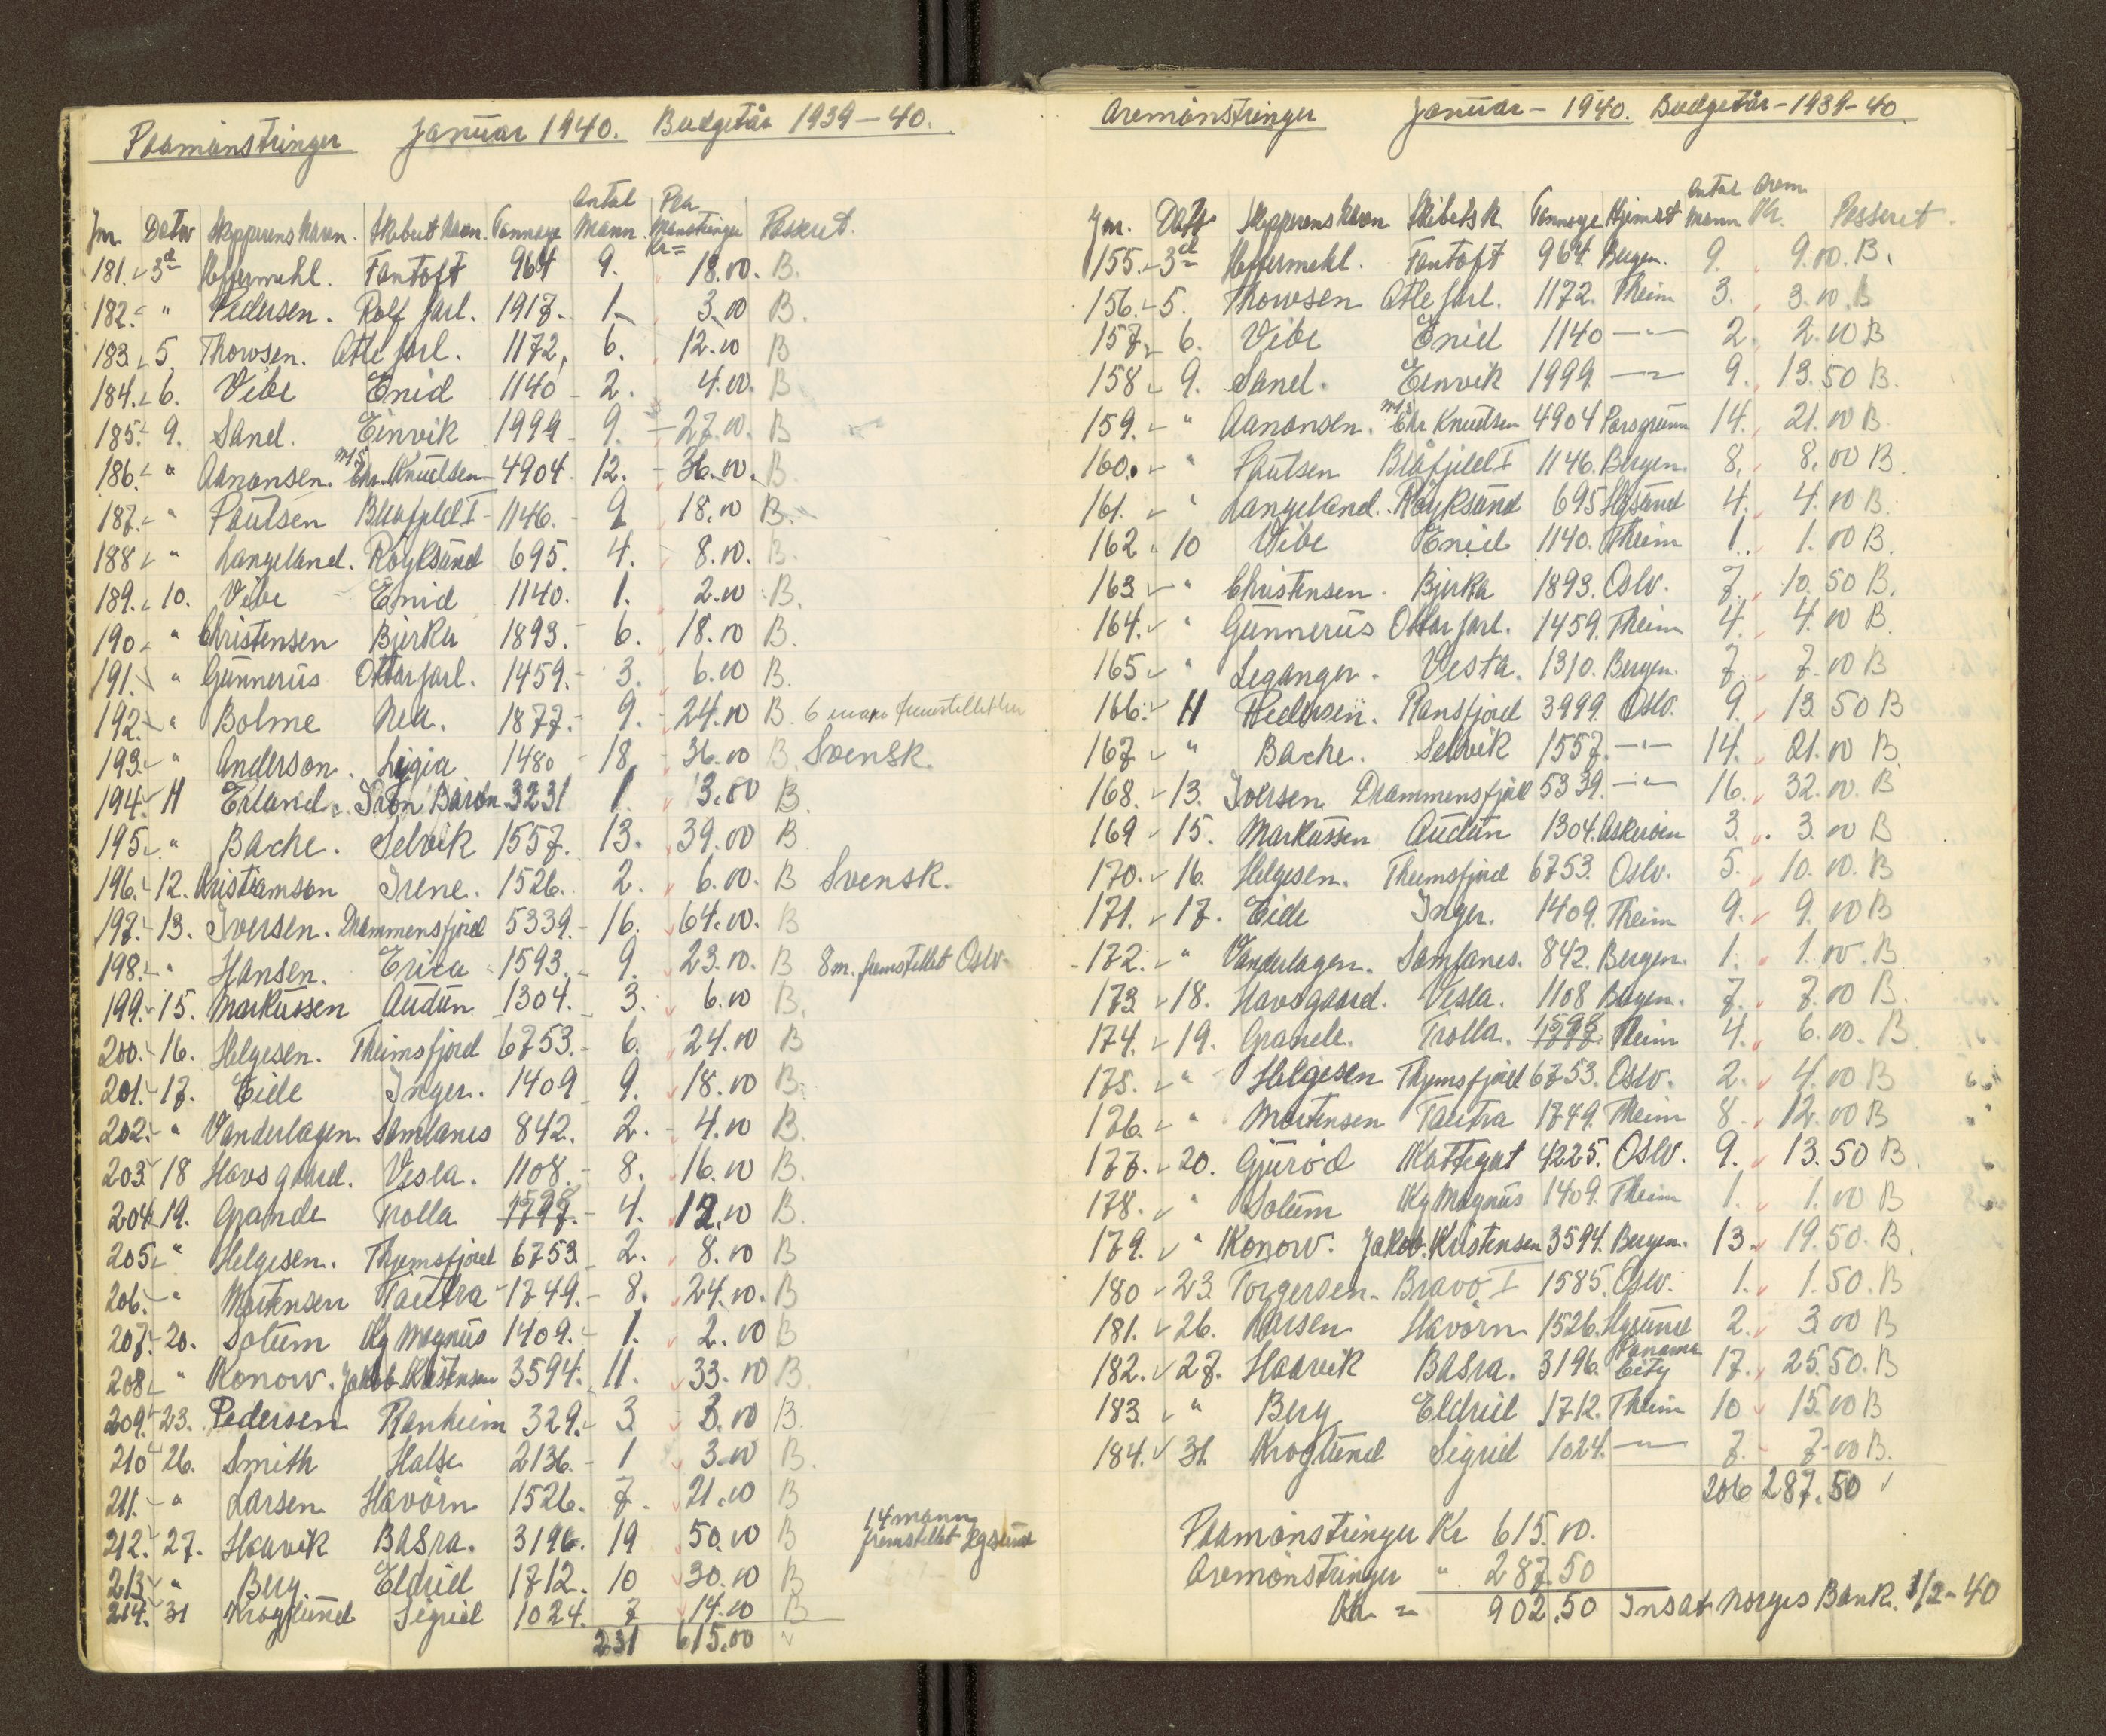 Paamönstringer Januar 1940. Budgetår 1939-40.
Jnr. Dato Skipperens Navn. Skibets Navn. Tonnage Antal Mann. Paa Mönstringer Kr= Passert.
181. 3d Heffermehl. Fantoft 964 9. 18.00. B.
182. " Pedersen. Rolf Jarl. 1917. 1. 3.00 B.
183. 5. Thowsen. Atle Jarl. 1172. 6. 12.00 B
184. 6. Vibe Enid 1140 2. 4.00. B
185. 9. Sand. Einvik 1999 9. 27.00. B
186. " Aanonsen. M/S Chr. Knudsen 4904 12. 36.00. B
187. " Paulsen Blåfjeld I 1146. 9 18.00 B.
188 " Langeland. Röyksund 695. 4. 8.00. B.
189. 10. Vibe Enid 1140. 1. 2.00 B.
190 " Christensen Bjerka 1893. 6. 18.00 B.
191. " Gunnerus Ottar Jarl. 1459. 3. 6.00 B.
192. " Bolme Nea. 1877. 9. 24.00 B. 6 mann fremstillet
193. " Anderson. Ligia 1480 18 36.00 B. Svensk.
194. 11 Erland. Iron Baron 3231 1. 3.00 B.
195. " Bache. Selvik 1557. 13. 39.00 B
196. 12. Kristianson Irene. 1526. 2. 6.00. B Svensk.
197. 13. Iversen. Drammensfjord 5339. 16. 64.00. B
198. " Hansen. Erica 1593. 9. 23.00. B 8 m. fremstillet Oslo.
199. 15. Markussen Audun 1304. 3. 6.00 B.
200. 16. Helgesen. Theimsfjord 6753. 6. 24.00 B
201. 17. Eide Inger. 1409 9. 18.00 B.
202. " Vanderlagen. Samlanes 842. 2. 4.00 B.
203. 18 Havsgaard. Vesla. 1108. 8. 16.00 B.
204. 19. Grande Trolla 1598 4. 12.00 B.
205. " Helgesen. Thjemsfjord 6753 2. 8.00 B
206. " Mortensen Tautra 1749. 8. 24.00. B
207. 20. Solum Kg Magnus 1409. 1. 2.00 B
208. " Konow. Jakob Kristensen 3594. 11. 33.00 B
209. 23. Pedersen Ranheim 329. 3 3.00 B.
210 26. Smith Halse 2136. 1 3.00 B.
211. " Larsen Havörn 1526. 7. 21.00 B
212. 27. Haavik Basra. 3196. 19 50.00 B 14 mann fremstillet Hgsund
213. " Berg. Eldrid 1712. 10 30.00 B
214. 31 Kroglund Sigrid 1024. 7 14.00 B
231 615.00
Avmönstringer Januar - 1940. Budgetår - 1939-40
Jnr. Dato Skipperens Navn Skibets N. Tonnage Hjemst Antal Mann Avm. Kr. Passeret.
155. 3d Heffermehl. Fantoft 964. Bergen. 9. 9.00. B.
156. 5. Thowsen Atle Jarl. 1172. Theim 3. 3.00 B
157. 6. Vibe Enid 1140 —"— 2. 2.00 B
158 9. Sand. Einvik 1999 —"— 9. 13.50 B.
159. " Aanonsen. M/S Chr. Knudsen 4904 Porsgrunn 14. 21.00 B
160. " Paulsen Blåfjeld I 1146. Bergen. 8. 8.00 B.
161. " Langeland. Röyksund 695 Hgsund 4. 4.00 B.
162 10 Vibe Enid 1140. Theim 1. 1.00 B.
163 " Christensen. Bjerka 1893. Oslo. 7. 10.50 B.
164. " Gunnerus Ottar Jarl. 1459. Theim 4. 4.00 B
165 " Leganger. Vesta. 1310. Bergen. 7. 7.00 B
166. 11 Pedersen. Ransfjord 3999. Oslo. 9. 13.50 B
167 " Bache. Selvik 1557. —"— 14. 21.00 B
168. 13. Iversen. Drammensfjord 5339. —"— 16. 32.00. B
169 15. Markussen Audun 1304. 3. 3.00 B
170. 16. Helgesen. Theimsfjord 6753. Oslo. 5. 10.00. B
171. 17. Eide Inger. 1409. Theim 9. 9.00 B
172. " Vanderlagen. Samlanes. 842. Bergen. 1. 1.00. B
173 18. Havsgaard. Vesla. 1108 Bergen. 7. 7.00 B.
174. 19. Grande. Trolla. 1598 Theim 4. 6.00. B
175. " Helgesen Thjemsfjord 6753. Oslo. 2. 4.00 B
176. " Mortensen Tautra 1749. Theim 8. 12.00 B
177. 20. Gjuröd Kattegat 4225. Oslo. 9. 13.50 B.
178. " Solum Kg Magnus 1409. Theim 1. 1.00 B
179. " Konow. Jakob. Kristensen 3594. Bergen. 13. 19.50. B.
180 23. Torgersen. Bravo I 1585. Oslo. 1. 1.50. B
181. 26. Larsen Havörn 1526. Hgsund 2. 3.00 B
182. 27. Haavik Basra. 3196. Panama City 17. 25.50. B
183 " Berg Eldrid 1712. Theim 10 15.00 B
184. 31. Kroglund Sigrid 1024. —"— 7. 7.00 B.
206 287.50
Paamönstringer Kr 615.00.
Avmönstringer " 287.50
Kr = 902.50 Insat Norges Bank. 1/2-40